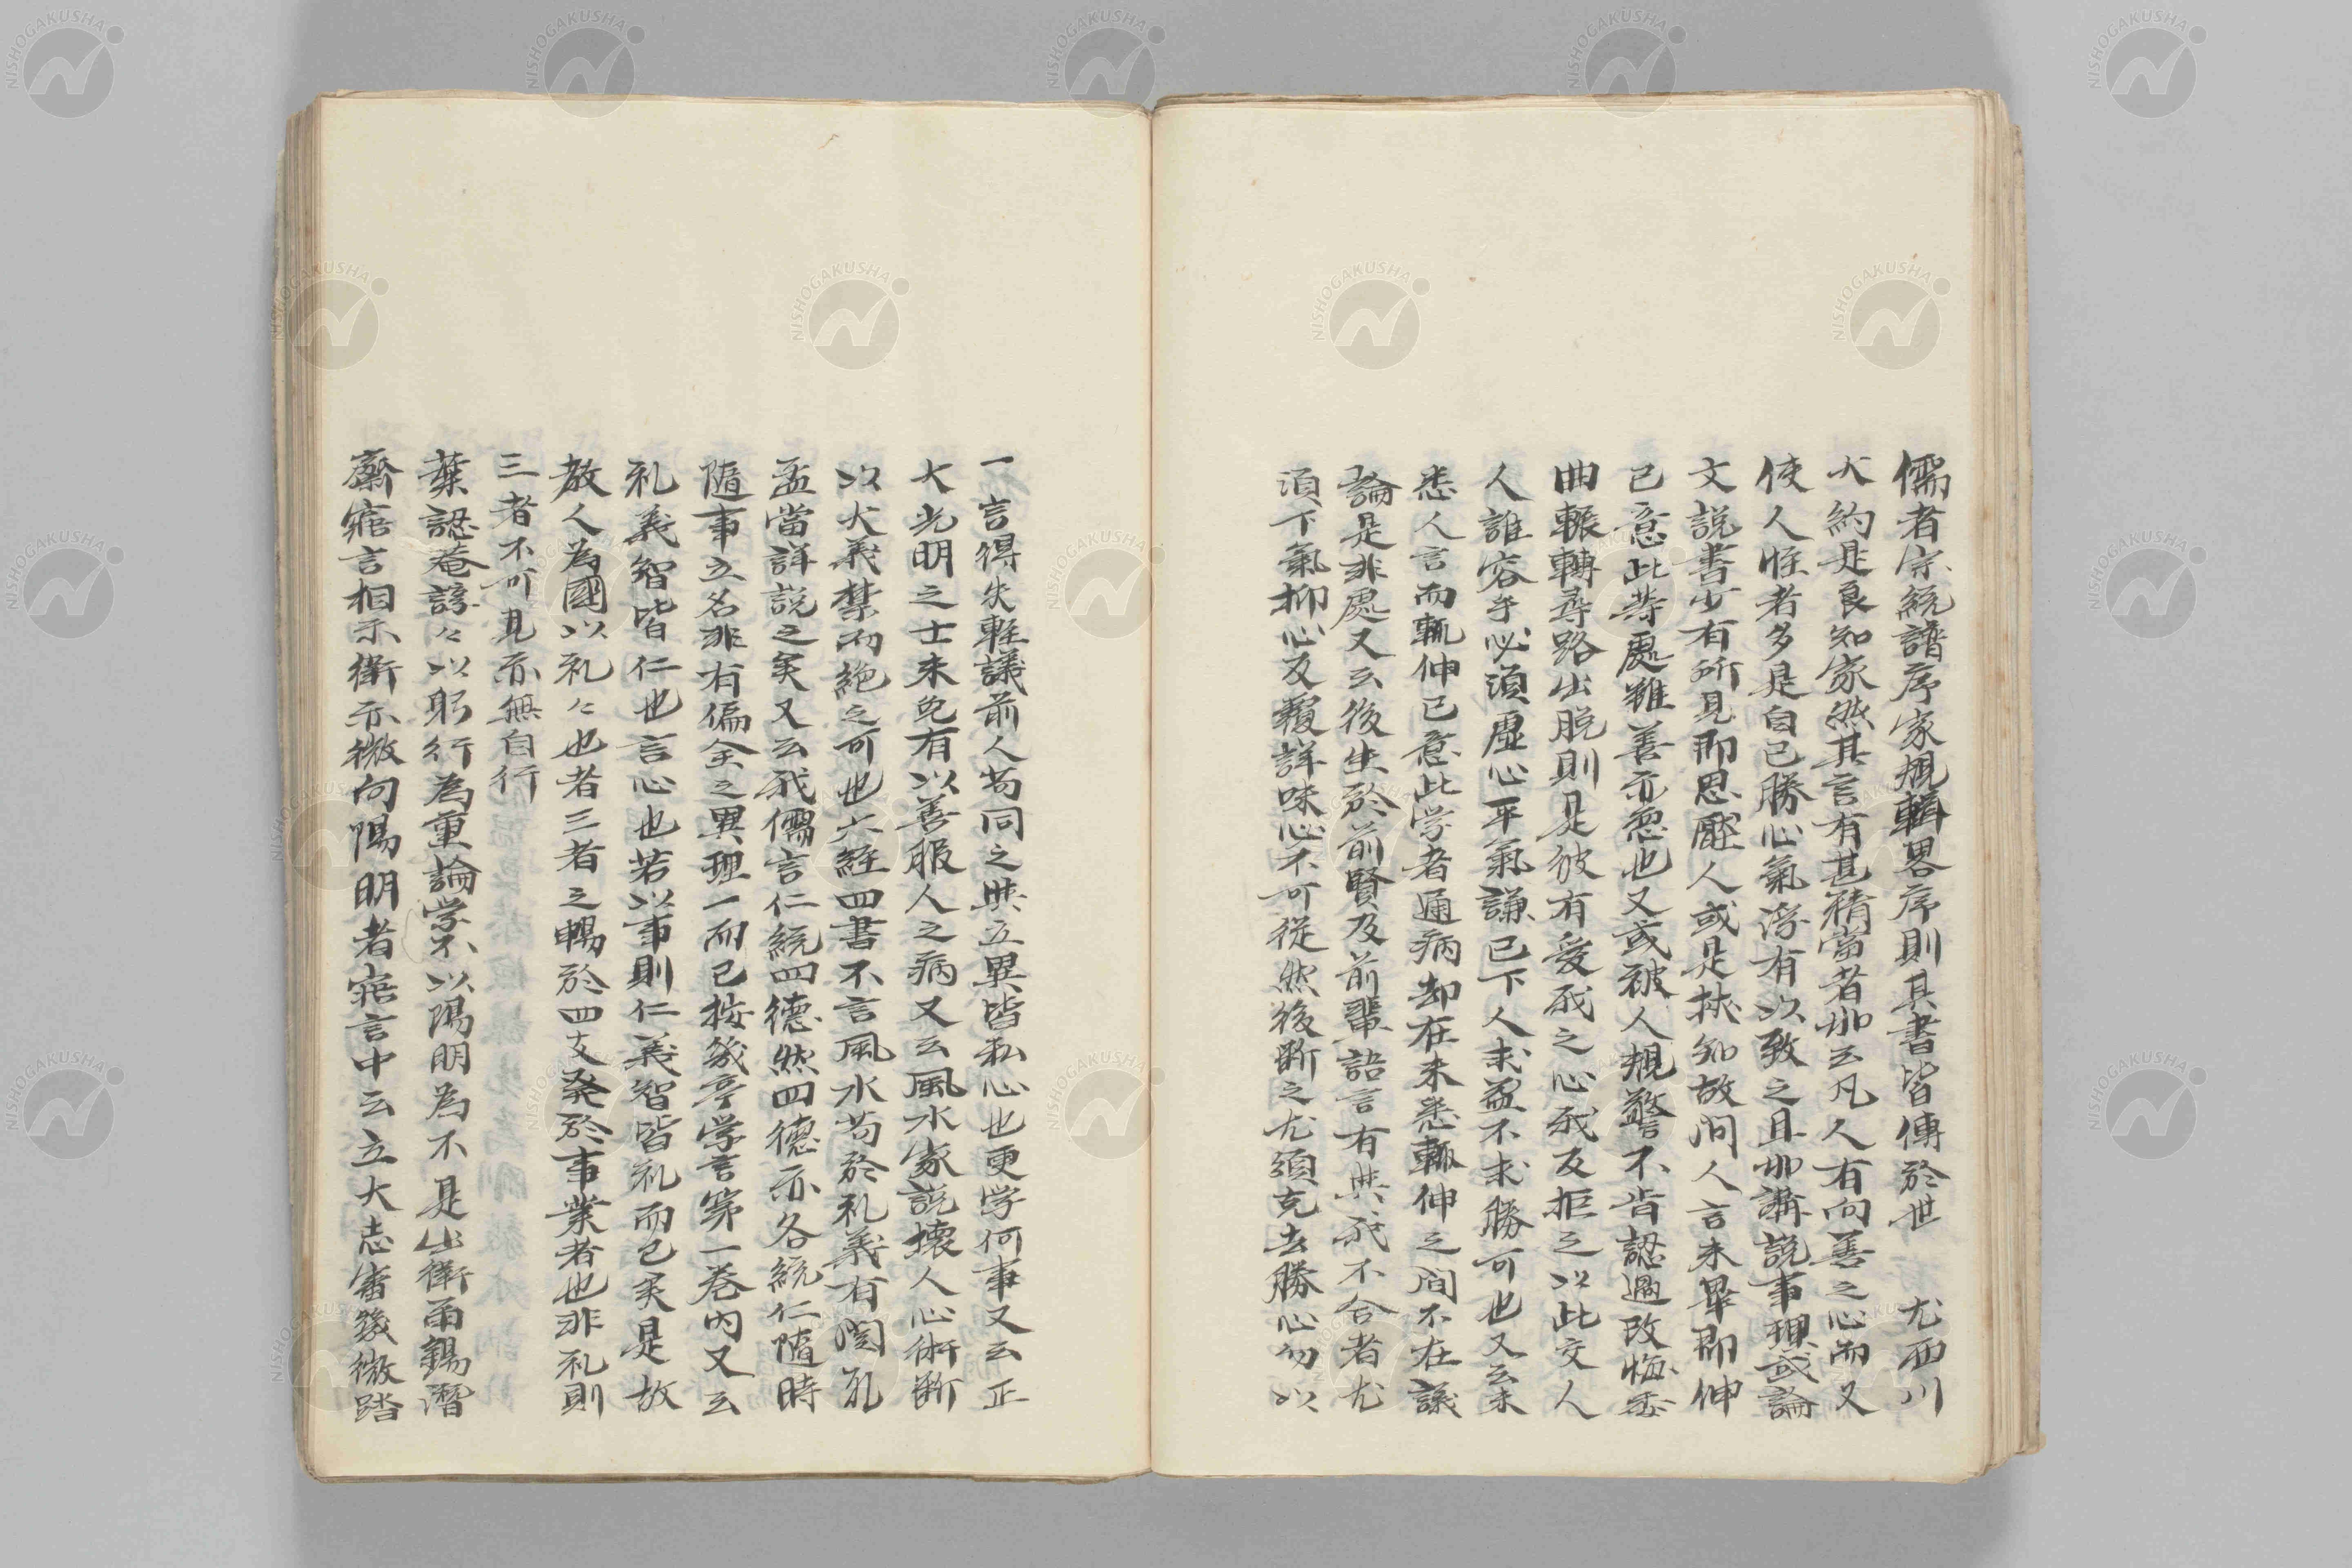 儒者宗統譜序家規輯畧序則其書皆傳於世　尤西川
大約是良知家然其言有甚精當者如云凡人有向善之心而又
使人惟者多是自己勝心氣浮有以致之且如講説事理或論
文説書少有所見即思壓人或是挾知故問人言未畢即伸
己意此等處雖善亦惡也又或被人規警不肯認過改悔委
曲輾轉尋路出脱則是彼有愛我之心我反拒之以此交人
人誰容乎必須虚心平氣謙己下人求益不求勝可也又云未
悉人言而輒伸己意此学者通病却在未悉輒伸之間不在議
論是非處又云後生於前賢及前輩語言有與我不合者尤
須下氣抑心反覆詳味心不可從然後斷之尤須克去勝心勿以
一言得失輕議前人苟同之與立異皆私心也更学何事又云正
大光明之士未免有以善服人之病又云風水家説壊人心術斷
以大義禁而絶之可也六經四書不言風水苟於礼義有関孔
孟當詳説之矣又云我儒言仁統四德然四德亦各統仁隨時
隨事立名非有偏全之異理一而已按幾亭学言第一巻内又云
礼義智皆仁也言心也若以事則仁義智皆礼而已矣是故
教人為國以礼々也者三者之暢於四支發於事業者也非礼則
三者不可見亦無自行
葉認菴諱々以躬行為重論学不以陽明為不是出衛南錫潛
齋寤言相示衛亦微向陽明者寤言中云立大志審幾微踏